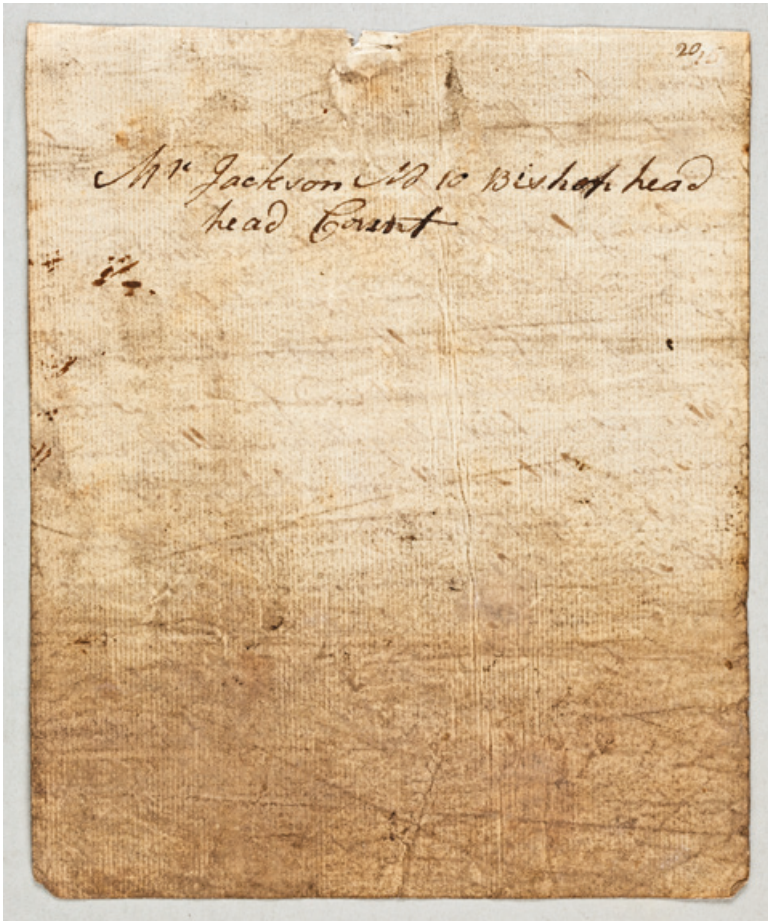 20
Mr Jackson No 10 Bishop head
head Court